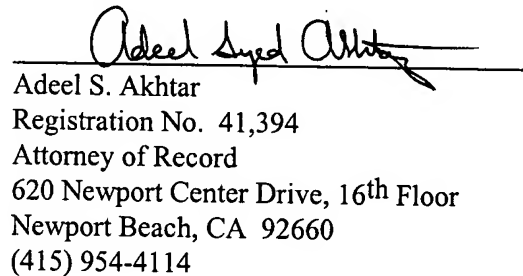 Adeel Syed Akhtar
Adeel S. Akhtar
Registration No. 41,394
Attorney of Record
620 Newport Center Drive, 16th Floor
Newport Beach, CA 92660
(415) 954-4114